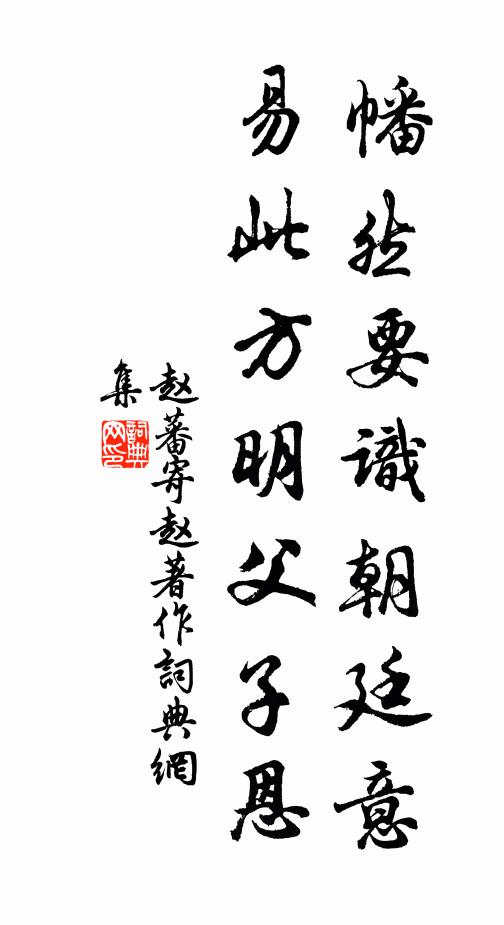 幡然要識朝廷意
易此方明父子恩
赵蕃寄赵著作詞典網
集
詞典
网印